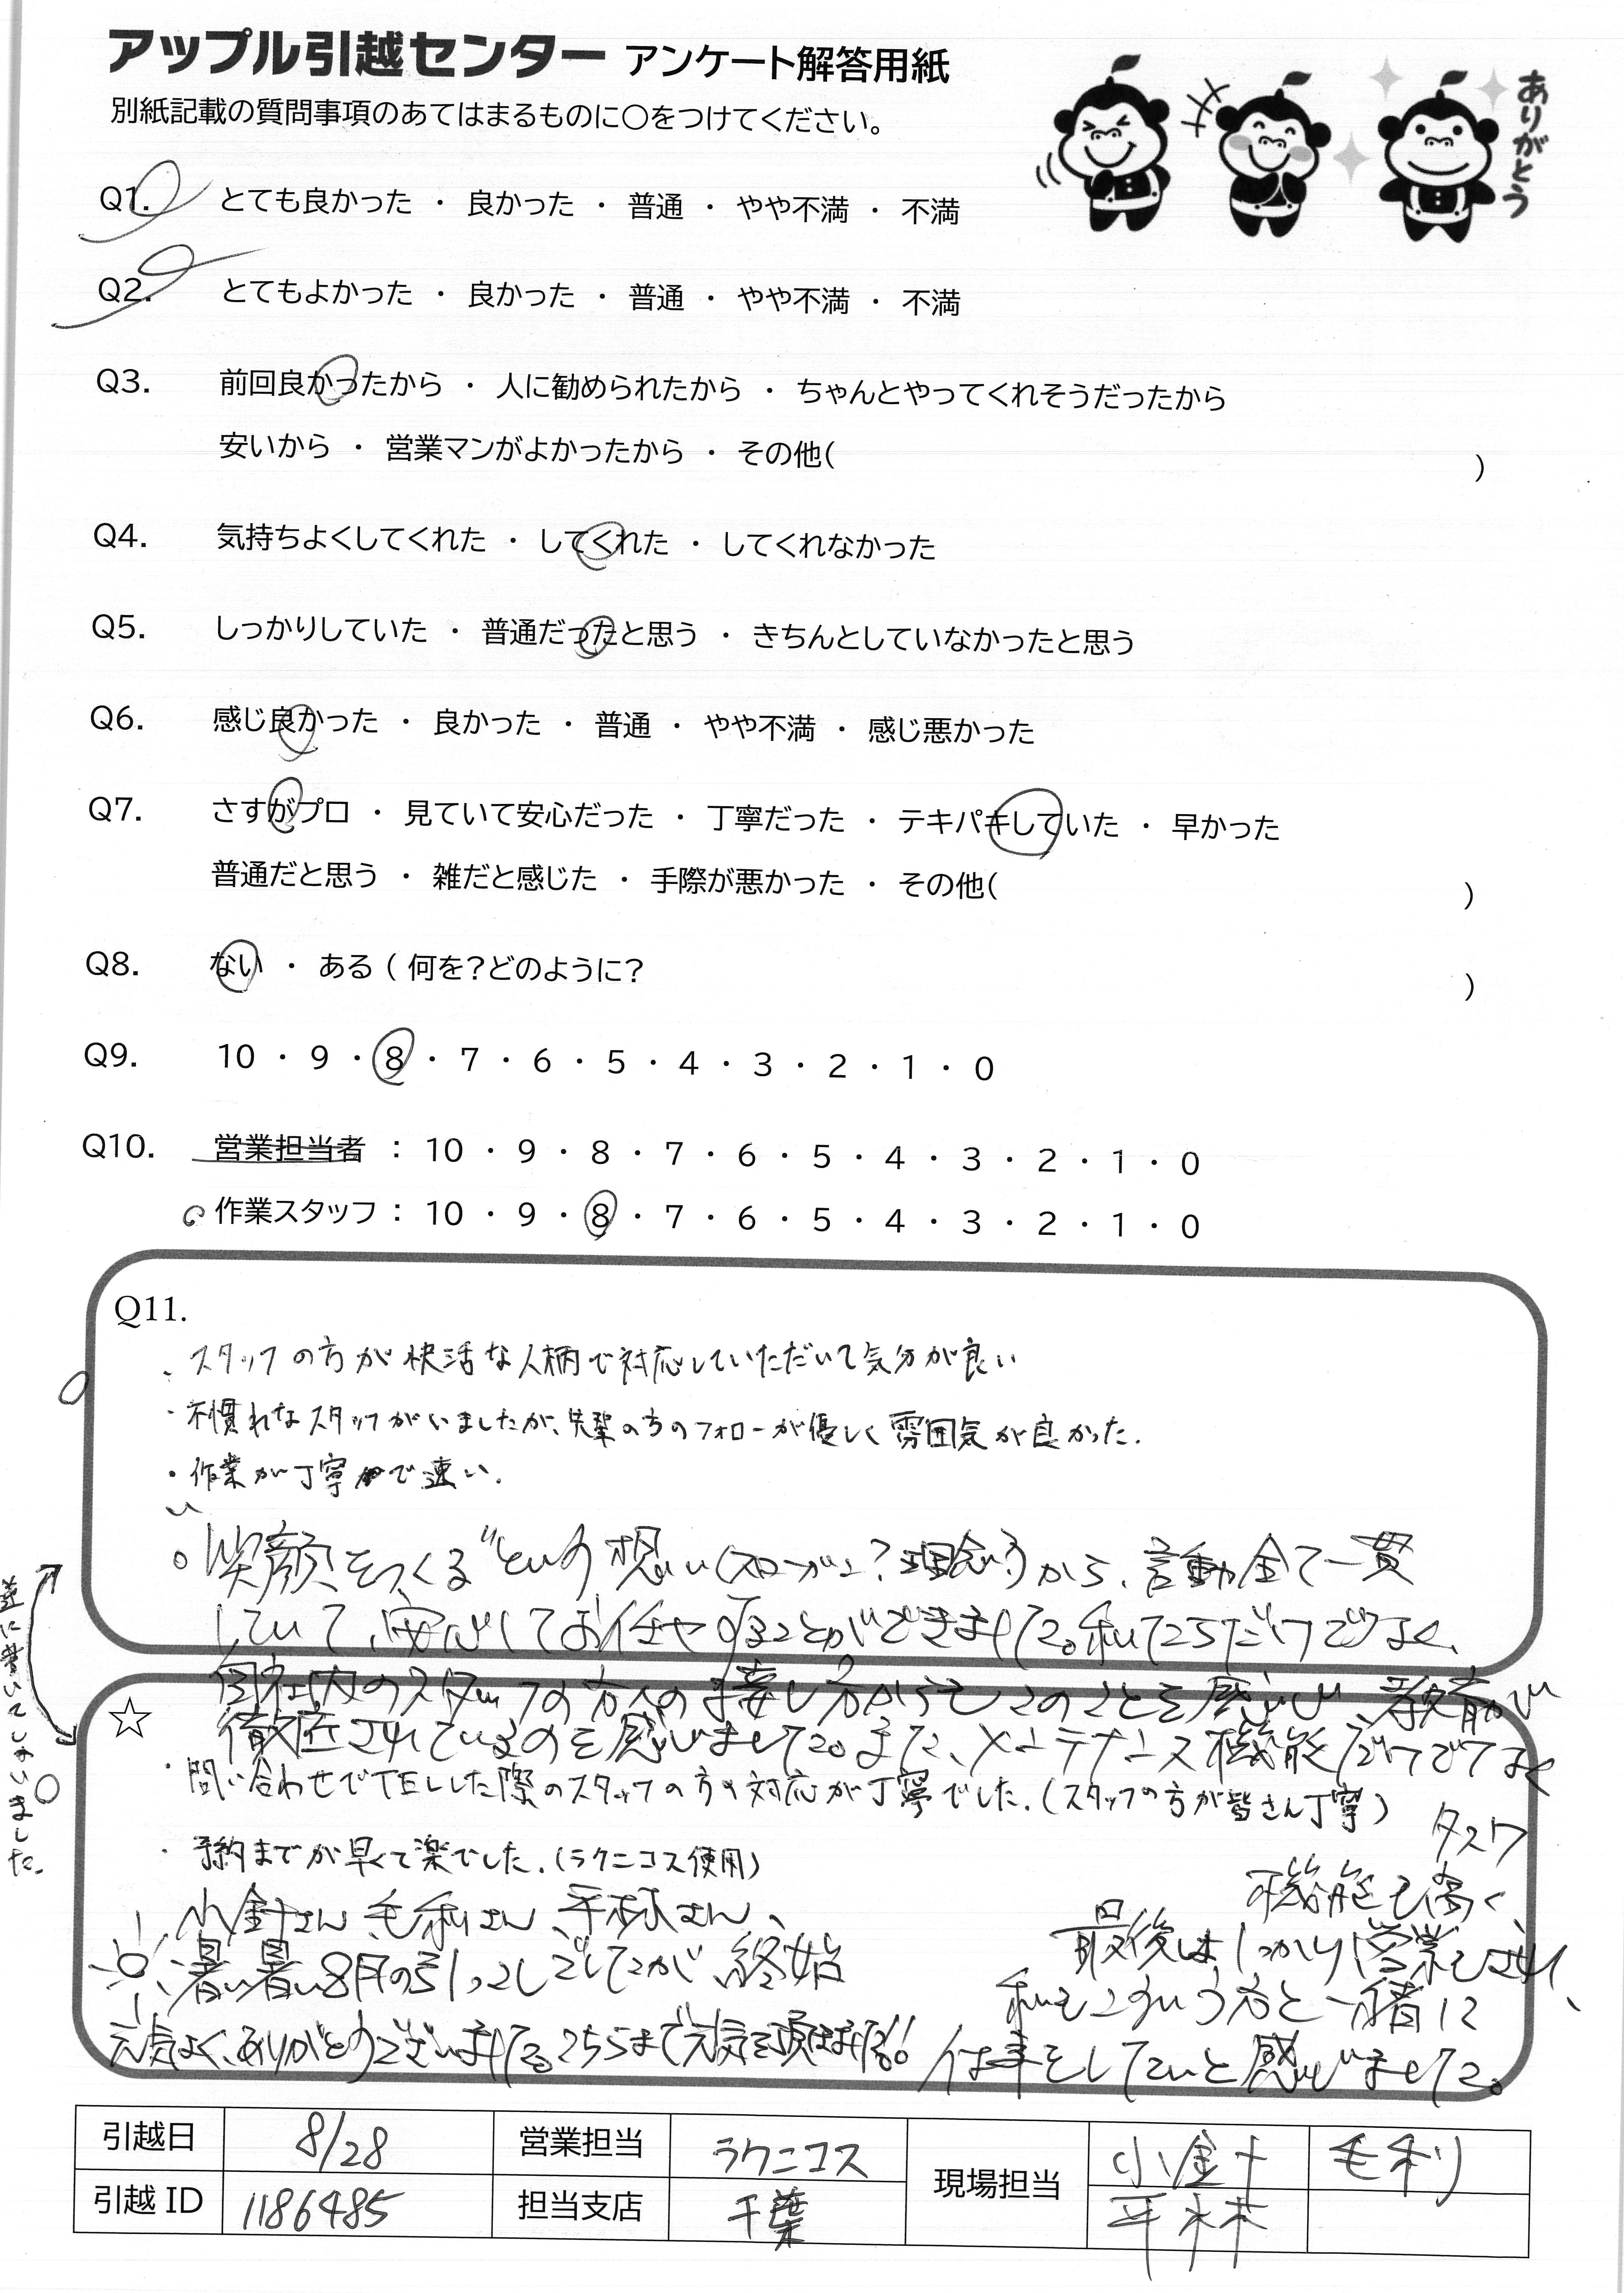 アップル引越センター アンケート解答用紙
別紙記載の質問事項のあてはまるものに○をつけてください。
ありがとう
Q1. とても良かった ・ 良かった ・ 普通 ・ やや不満 ・ 不満
Q2. とてもよかった ・ 良かった ・ 普通 ・ やや不満 ・ 不満
Q3. 前回良かったから ・ 人に勧められたから ・ ちゃんとやってくれそうだったから
安いから ・ 営業マンがよかったから ・ その他( )
Q4. 気持ちよくしてくれた ・ してくれた ・ してくれなかった
Q5. しっかりしていた ・ 普通だったと思う ・ きちんとしていなかったと思う
Q6. 感じ良かった ・ 良かった ・ 普通 ・ やや不満 ・ 感じ悪かった
Q7. さすがプロ ・ 見ていて安心だった ・ 丁寧だった ・ テキパキしていた ・ 早かった
普通だと思う ・ 雑だと感じた ・ 手際が悪かった ・ その他( )
Q8. ない ・ ある ( 何を?どのように? )
Q9. 10 ・ 9 ・ 8 ・ 7 ・ 6 ・ 5 ・ 4 ・ 3 ・ 2 ・ 1 ・ 0
Q10. 営業担当者 : 10 ・ 9 ・ 8 ・ 7 ・ 6 ・ 5 ・ 4 ・ 3 ・ 2 ・ 1 ・ 0
作業スタッフ : 10 ・ 9 ・ 8 ・ 7 ・ 6 ・ 5 ・ 4 ・ 3 ・ 2 ・ 1 ・ 0
Q11.
・スタッフの方が快活な人柄で対応していただいて気分が良い
・不慣れなスタッフがいましたが、先輩の方のフォローが優しく雰囲気が良かった.
・作業が丁寧で速い.
○"笑顔をつくる"という想い(スローガン?理念?)から、言動全て一貫
していて、安心してお任せすることができました。私たちだけでなく、
同社内のスタッフの方への接し方からもそのことを感じ、教育が
徹底されているのを感じました。また、メンテナンス機能だけでなく
タスク
機能も高く、
最後はしっかり営業もされ、
私もこういう方と一緒に
仕事をしたいと感じました。
逆に書いてしまいました。
☆
・問い合わせでTELした際のスタッフの方の対応が丁寧でした.(スタッフの方が皆さん丁寧)
・予約までが早くて楽でした.(ラクニコス使用)
小針さん、毛利さん、平林さん、
暑い暑い8月の引っこしでしたが、終始
元気よく、ありがとうございました。こちらまで元気を頂きました!!
引越日 8/28 営業担当 ラクニコス 現場担当 小針 毛利
引越 ID 1186485 担当支店 千葉 平林